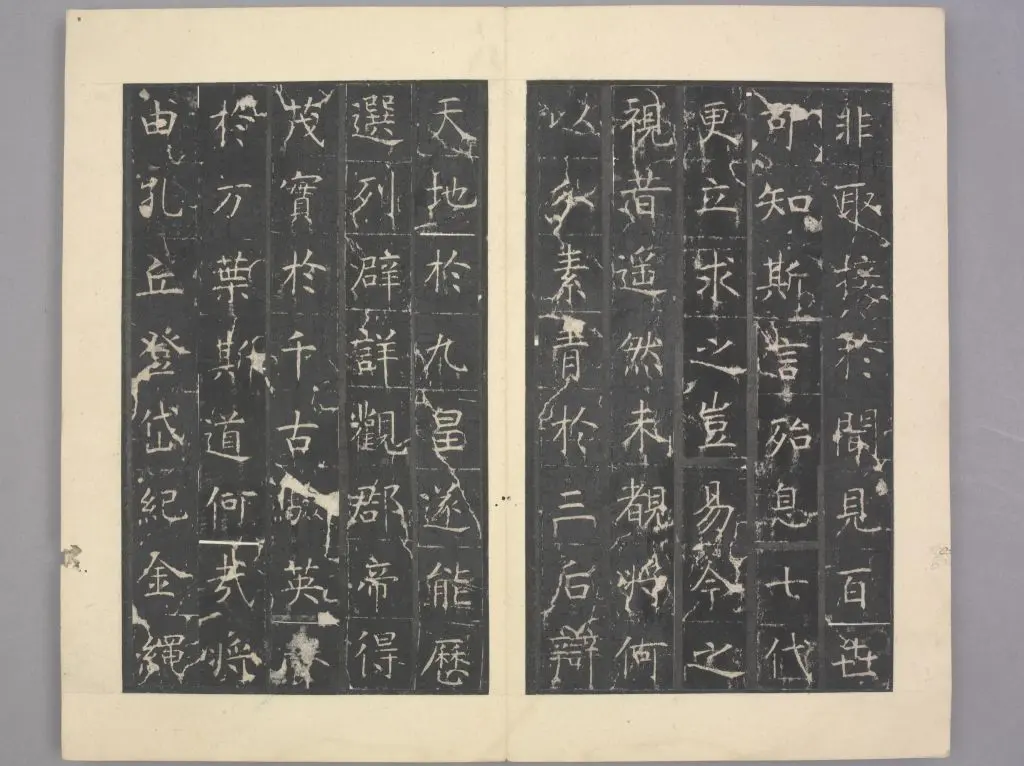 非取接於聞見百世
可知斯言殆息七代
更立求之豈易今之
視昔遥然未覩將何
以分素青於三后辯
天地於九皇遂能歷
選列辟詳觀郡帝得
茂實於千古英聲
於万葉斯道何哉將
由孔丘登岱紀金繩